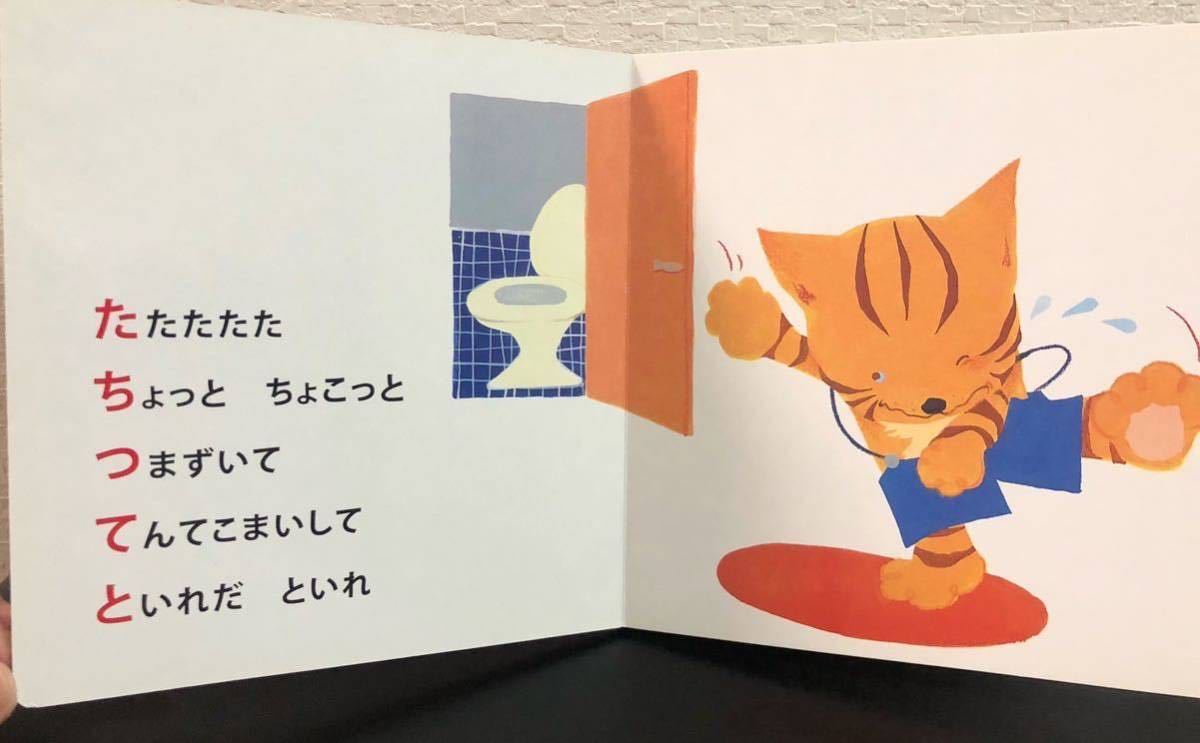 たたたたた
ちょっと　ちょこっと
つまずいて
てんてこまいして
といれだ　といれ